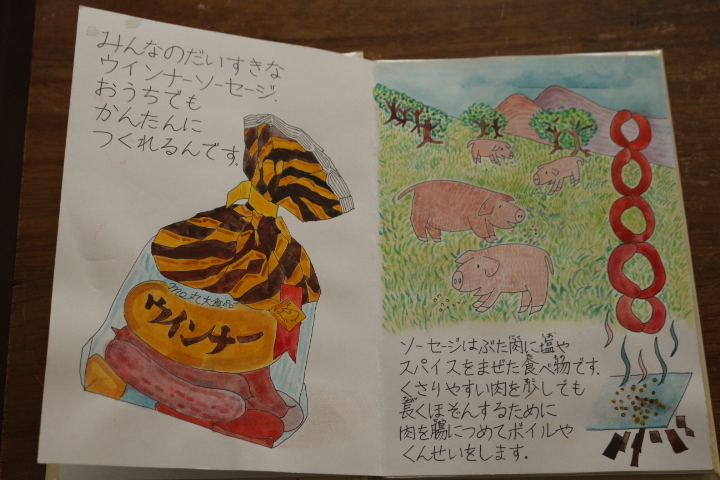 みんなのだいすきな
ウインナーソーセージ.
おうちでも
かんたんに
つくれるんです.
丸大食品
ウインナー
ソーセージはぶた肉に塩や
スパイスをまぜた食べ物です.
くさりやすい肉を少しでも
長くほぞんするために
肉を腸につめてボイルや
くんせいをします.